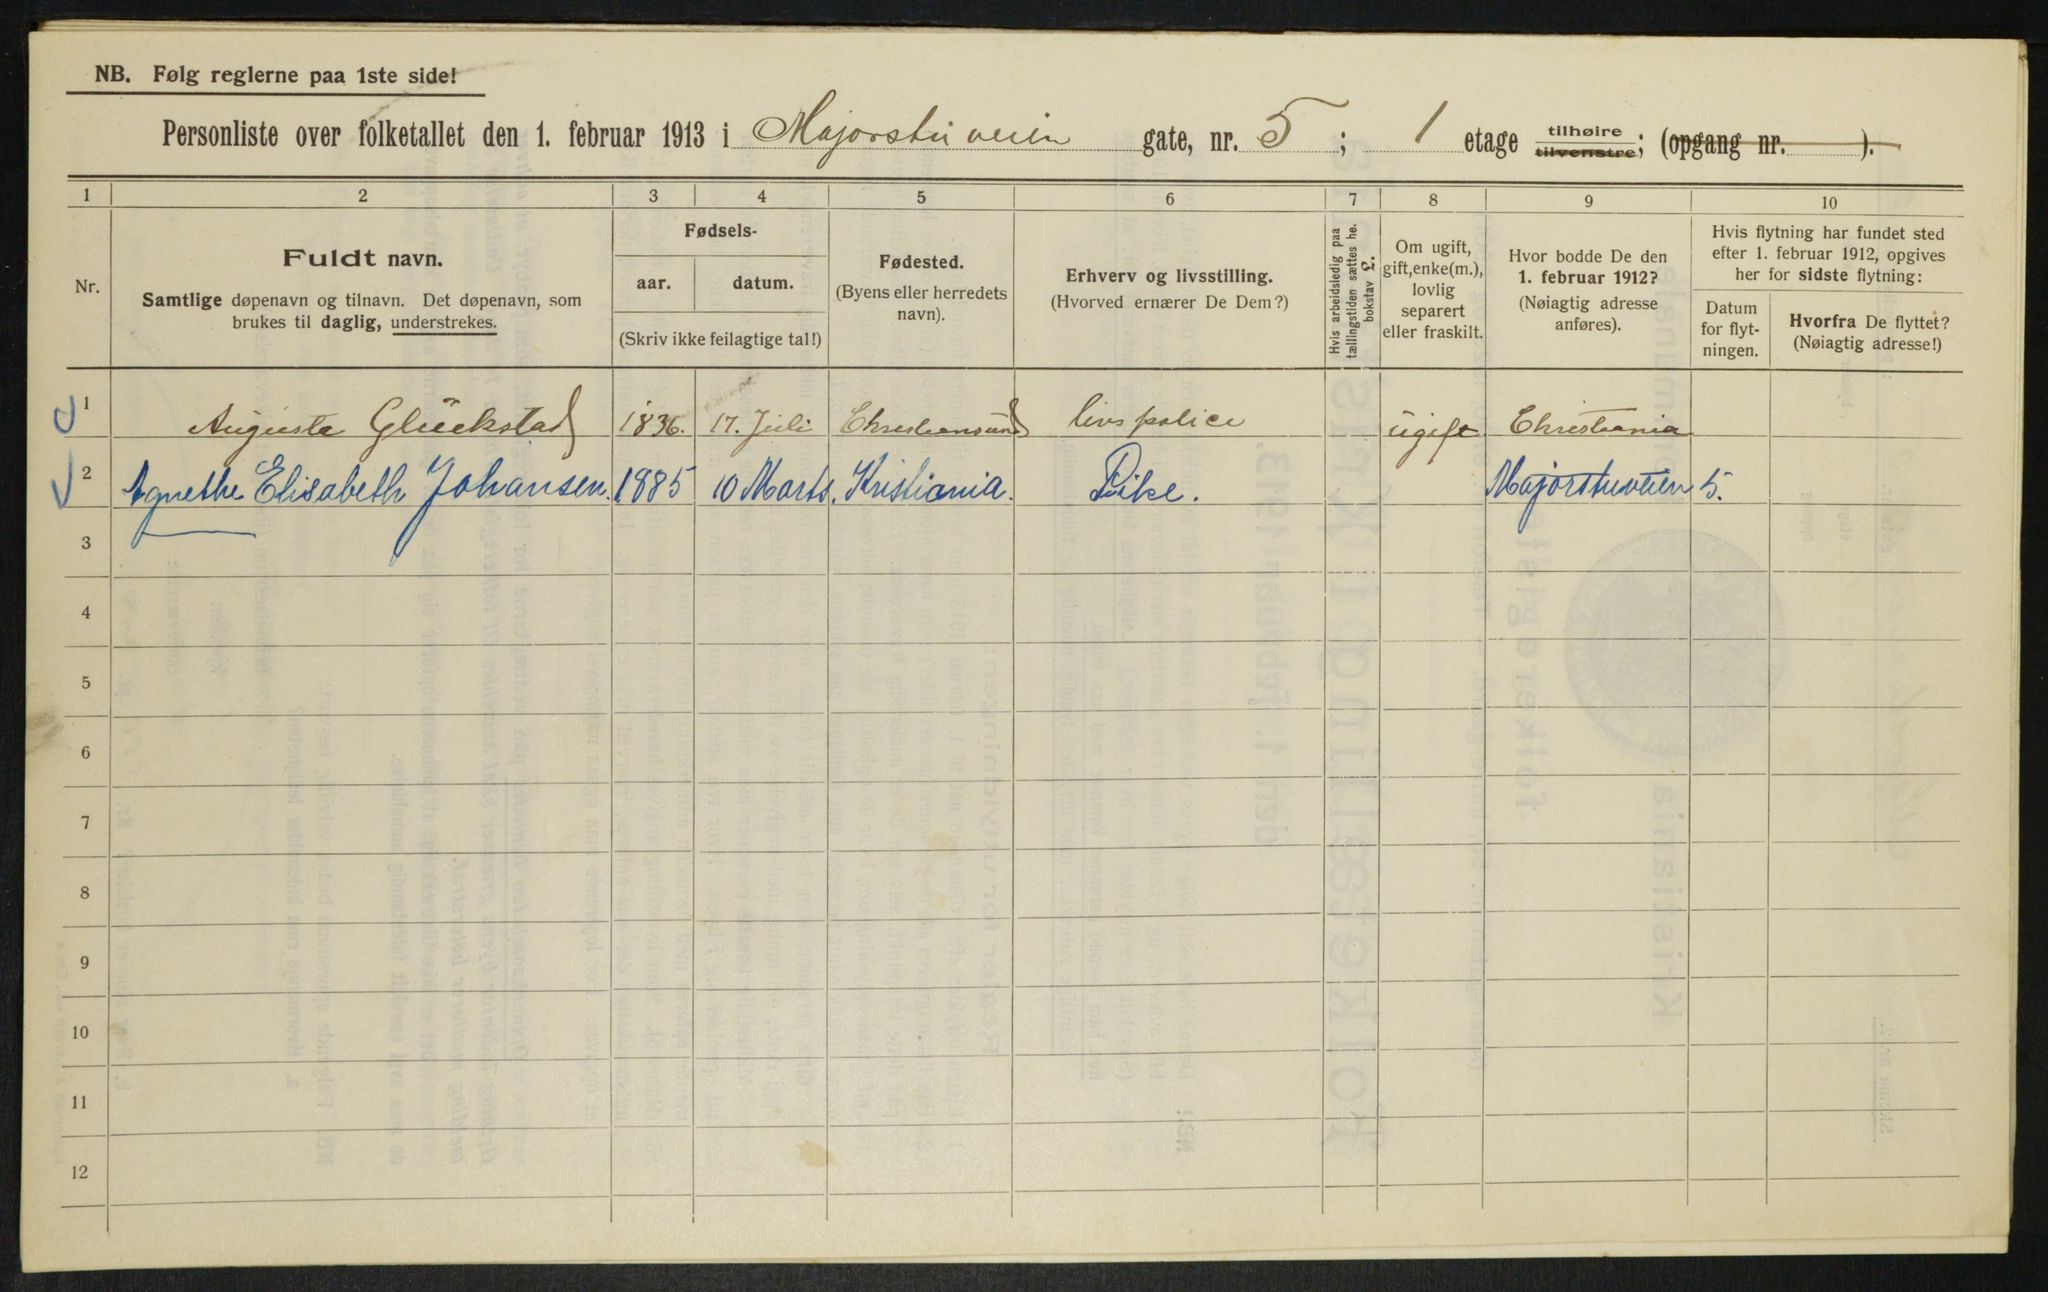 NB. Følg reglerne paa 1ste side!
Personliste over folketallet den 1. februar 1913 i Majorstuveien gate, nr. 5; 1 etage tilhøire tilvenstre; (opgang nr. ).
1 2 3 4 5 6 7 8 9 10
Nr.
Fuldt navn.
Samtlige døpenavn og tilnavn. Det døpenavn, som
brukes til daglig, understrekes.
Fødsels-
aar. datum.
(Skriv ikke feilagtige tal!)
Fødested.
(Byens eller herredets
navn).
Erhverv og livsstilling.
(Hvorved ernærer De Dem?)
Hvis arbeidsledig paa
tællingstiden sættes he.
bokstav £.
Om ugift,
gift, enke(m.),
lovlig
separert
eller fraskilt.
Hvor bodde De den
1. februar 1912?
(Nøiagtig adresse
anføres).
Hvis flytning har fundet sted
efter 1. februar 1912, opgives
her for sidste flytning:
Datum
for flyt-
ningen.
Hvorfra De flyttet?
(Nøiagtig adresse!)
1 Augusta Glückstad 1836. 17. Juli Christiansund livspolice ugift Christiania
2 Agnethe Elisabeth Johansen. 1885 10 Marts. Kristiania. Pike. Majorstuveien 5.
3
4
5
6
7
8
9
10
11
12